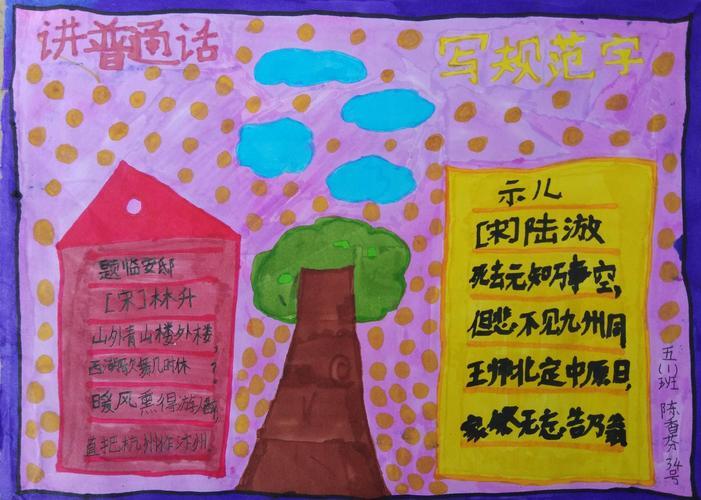 讲普通话
写规范字
题临安邸
[宋]林升
山外青山楼外楼,
西湖歌舞几时休?
暖风熏得游人醉,
直把杭州作汴州.
示儿
[宋]陆游
死去元知万事空,
但悲不见九州同
王师北定中原日,
家祭无忘告乃翁
五(1)班 陈香芬 34号